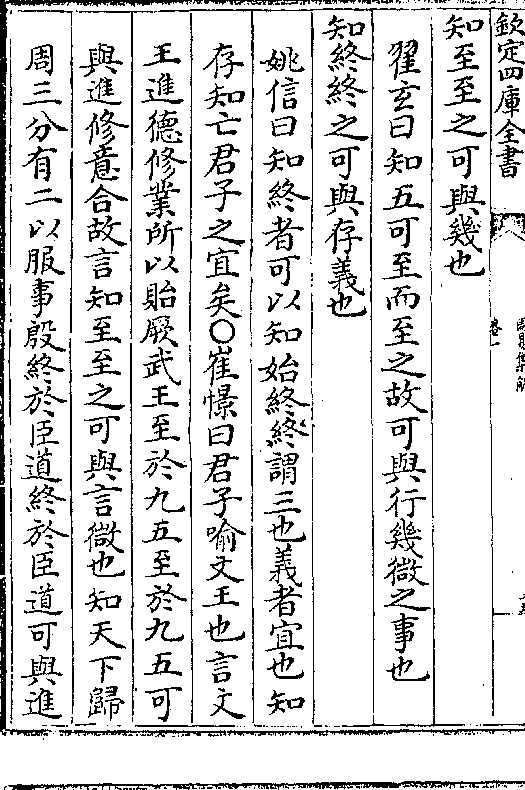 欽定四庫全書
知至至之可與幾也
翟玄曰知五可至而至之故可與行幾微之事也
知終終之可與存義也
姚信曰知終者可以知始終終謂三也義者宜也知
存知亡君子之宜矣○崔憬曰君子喻文王也言文
王進德修業所以貽厥武王至於九五至於九五可
與進修意合故言知至至之可與言微也知天下歸
周三分有二以服事殷終於臣道終於臣道可與進